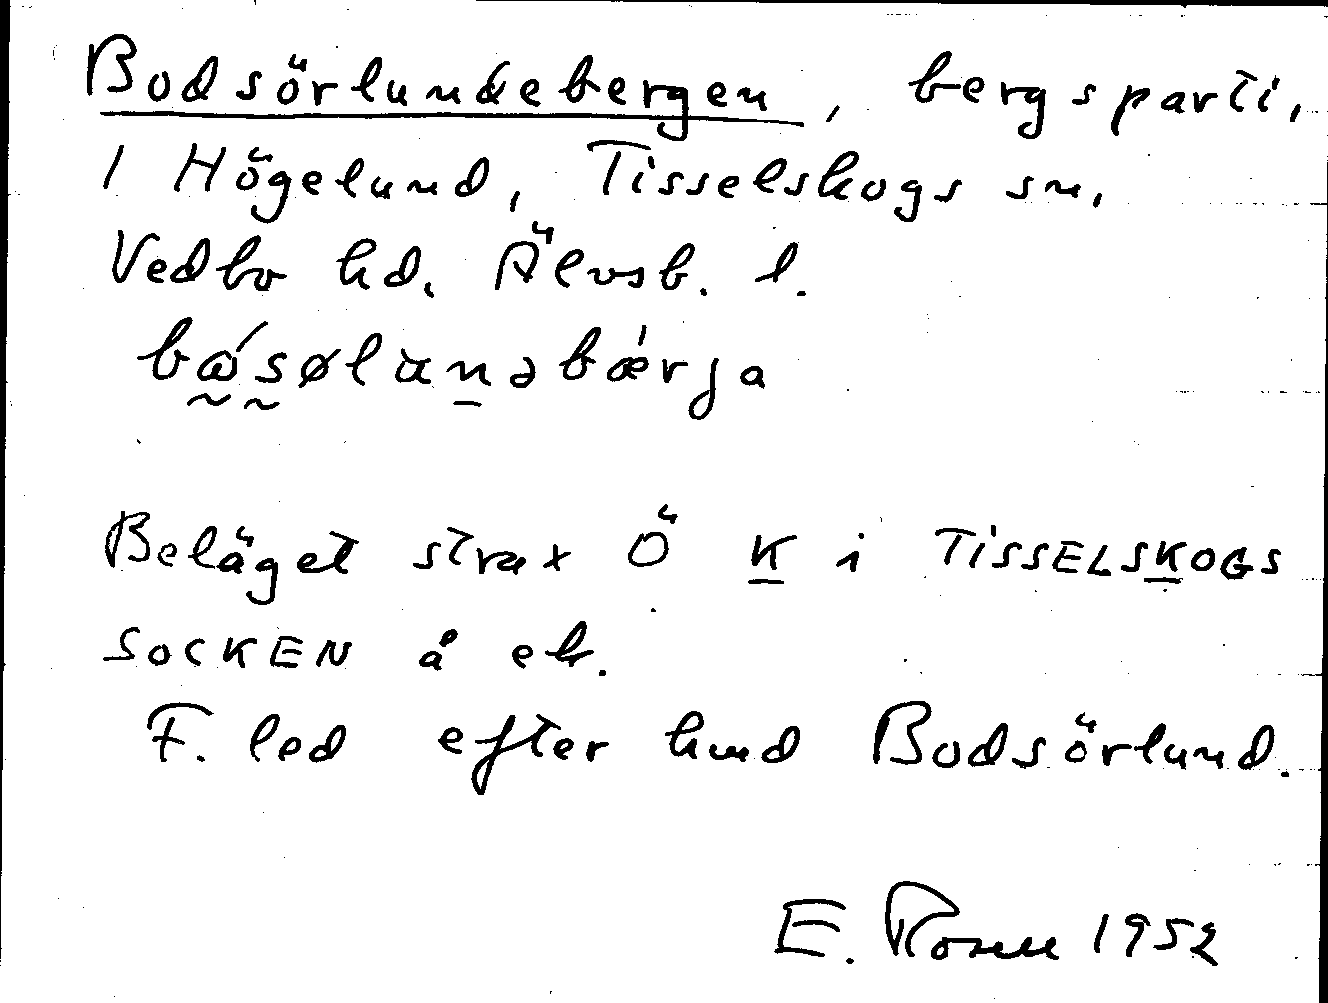 Bodsörlundebergen, bergsparti,
1 Högelund, Tisselskogs sn,
Vedbo hd, Älvsb. l.
Beläget strax Ö K i TISSELSKOGS
SOCKEN å ek.
F. led efter hmd Bodsörlund.
E. 1952